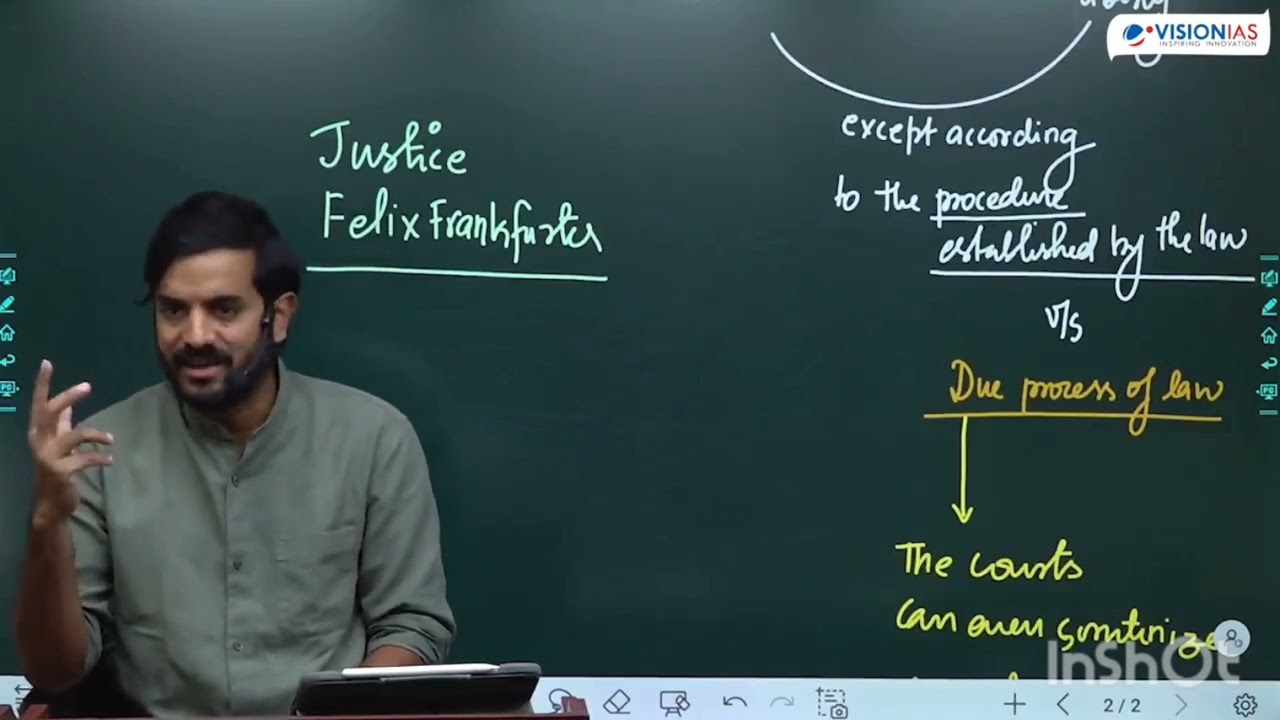 VISIONIAS
INSPIRING INNOVATION
Justice
Felix Frankfurter
except according
to the procedure
established by the law
v/s
Due process of law
The courts
can even scrutinize
InShOt
2/2